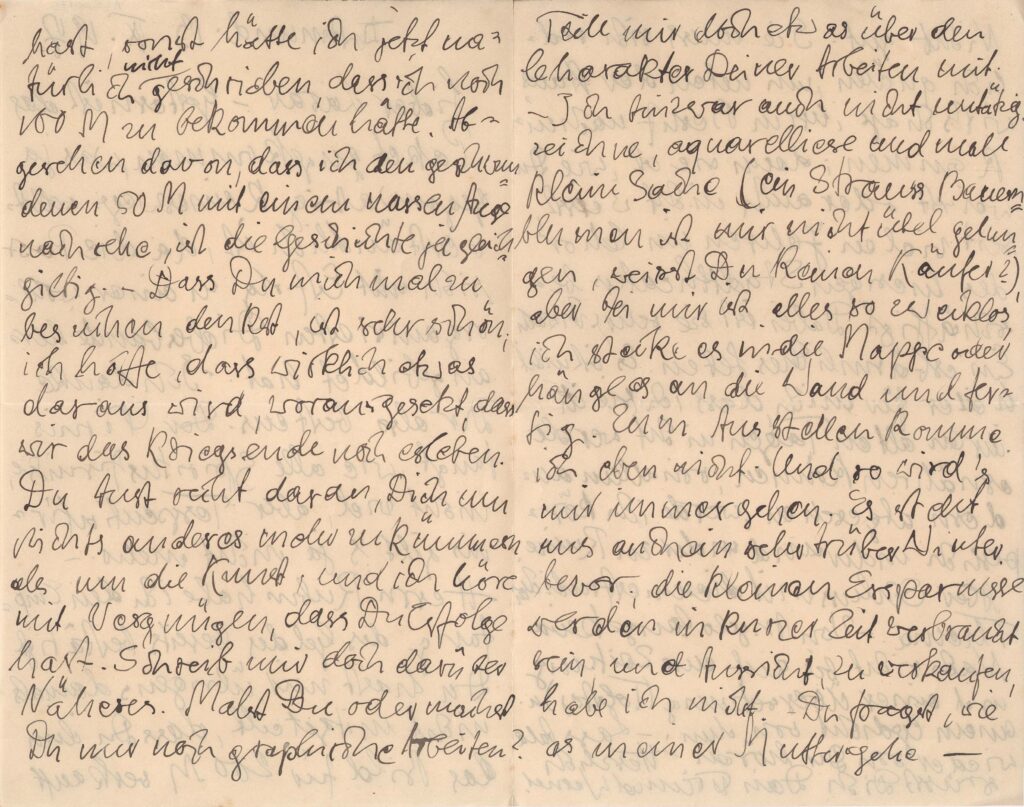 hast, sonst hätte ich jetzt na=
türlich nicht geschrieben, dass ich noch
100 M zu bekommen hätte. Ab=
gesehen davon, dass ich den geschwun=
denen 50 M mit einem nassen Auge
nachsehe, ist die Geschichte ja gleich=
giltig. – Dass Du mich mal zu
besuchen denkst, ist sehr schön,
ich hoffe, dass wirklich etwas
daraus wird, vorausgesetzt, dass
wir das Kriegsende noch erleben.
Du tust recht daran, Dich um
nichts anderes mehr zu kümmern
als um die Kunst, und ich höre
mit Vergnügen, dass Du Erfolge
hast. Schreib mir doch darüber
Näheres. Malst Du oder machst
Du nur noch graphische Arbeiten?
Teile mir doch etwas über den
Charakter Deiner Arbeiten mit.
– Ich bin zwar auch nicht untätig,
zeichne, aquarelliere und male
kleine Sache (ein Strauss Bauern=
blumen ist mir nicht übel gelun=
gen, weisst Du keinen Käufer?),
aber bei mir ist alles so zwecklos,
ich stecke es in die Mappe oder
hänge es an die Wand und fer=
tig. Zum Ausstellen komme
ich eben nicht. Und so wird's
mir immer gehen. Es steht
uns auch ein sehr trüber Winter
bevor, die kleinen Ersparnisse
werden in kurzer Zeit verbraucht
sein, und Aussicht, zu verkaufen,
habe ich nicht. Du fragst, wie
es meiner Mutter gehe –